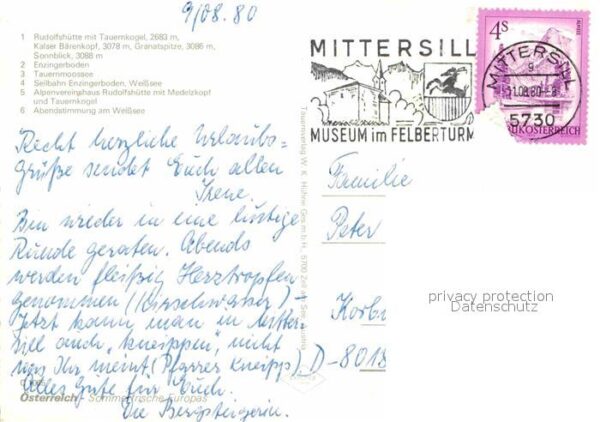 9/08. 80
1 Rudolfshütte mit Tauernkogel, 2683 m,
Kalser Bärenkopf, 3078 m, Granatspitze, 3086 m,
Sonnblick, 3088 m
2 Enzingerboden
3 Tauernmoossee
4 Seilbahn Enzingerboden, Weißsee
5 Alpenvereinshaus Rudolfshütte mit Medelzkopf
und Tauernkogel
6 Abendstimmung am Weißsee
Recht herzliche Urlaubs-
grüße sendet Euch allen
Irene.
Bin wieder in eine lustige
Runde geraten. Abends
werden fleißig Herztropfen
genommen (Kirschwasser) –
Jetzt kann man in Mitter-
sill auch "kneippen", nicht
was Ihr meint (Pfarrer Kneipp).
Alles Gute für Euch.
Die Bergsteigerin.
Österreich Sommerfrische Europas
Tauernverlag W. K. Hühne Ges.m.b.H., 5700 Zell am See, Austria
MITTERSILL
MUSEUM im FELBERTURM
4S
MITTERSILL
5730
Familie
Peter
D-8018
privacy protection
Datenschutz